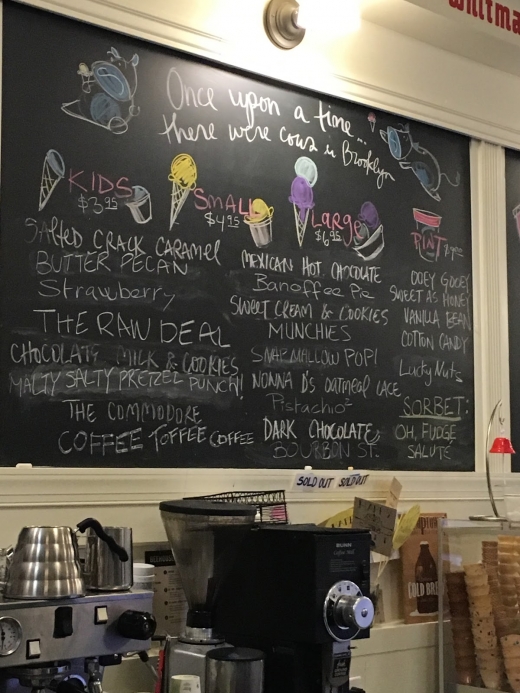 Once upon a time...
there were cows in Brooklyn
KIDS
$3.95
SMALL
$4.95
Large
$6.95
PINT
SALTED CRACK CARAMEL
BUTTER PECAN
Strawberry
THE RAW DEAL
CHOCOLATE MILK & COOKIES
MALTY SALTY PRETZEL PUNCH!
THE COMMODORE
COFFEE TOFFEE COFFEE
MEXICAN HOT CHOCOLATE
Banoffee Pie
SWEET CREAM & COOKIES
MUNCHIES
SNAP MALLOW POP!
NONNA D'S OATMEAL LACE
Pistachio²
DARK CHOCOLATE
BOURBON ST.
OOEY GOOEY
SWEET AS HONEY
VANILLA BEAN
COTTON CANDY
Lucky Nuts
SORBET:
OH, FUDGE
SALUTE
SOLD OUT SOLD OUT
BUNN
COLD